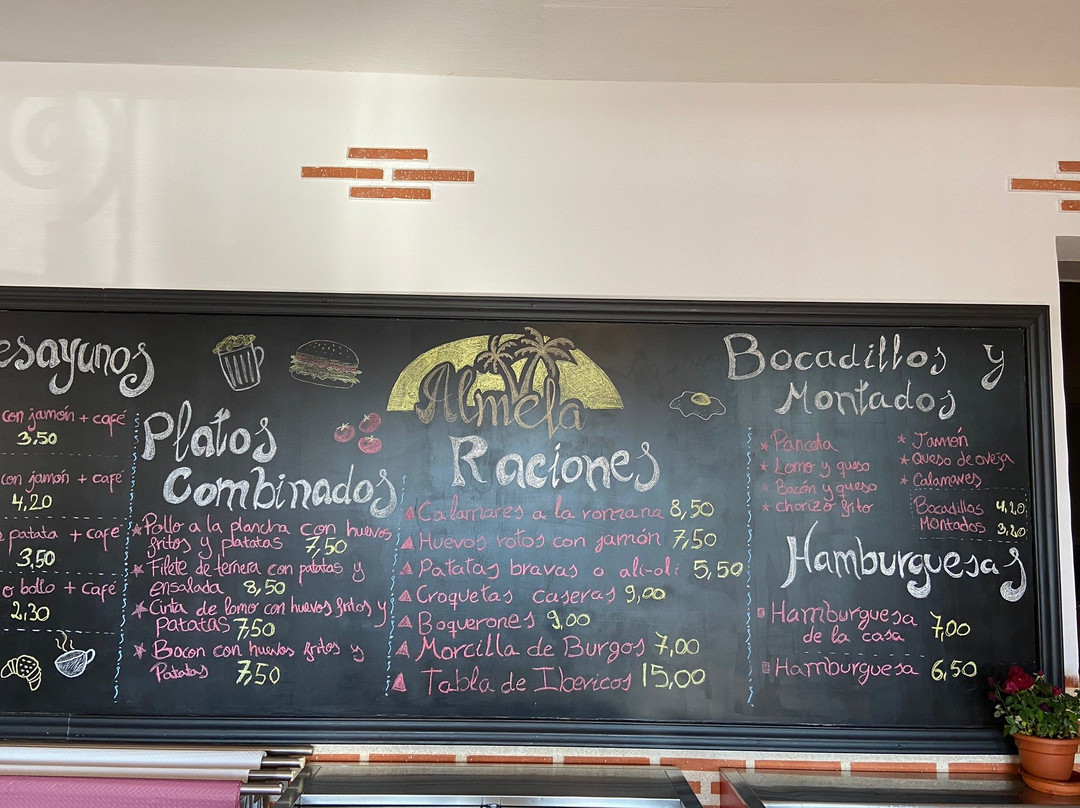 esayunos
con jamón + café
3,50
con jamón + café
4,20
patata + café
3,50
o bollo + café
2,30
Platos
Combinados
Pollo a la plancha con huevos
fritos y platatas 7,50
Filete de ternera con patatas y
ensalada 8,50
Cinta de lomo con huevos fritos y
patatas 7,50
Bacon con huevos fritos y
Patatas 7,50
Almela
Raciones
Calamares a la romana 8,50
Huevos rotos con jamón 7,50
Patatas bravas o ali-oli 5,50
Croquetas caseras 9,00
Boquerones 9,00
Morcilla de Burgos 7,00
Tabla de Ibericos 15,00
Bocadillos y
Montados
Panceta
Lomo y queso
Bacón y queso
Chorizo frito
Jamón
Queso de oveja
Calamares
Bocadillos 4,20
Montados 3,20
Hamburguesas
Hamburguesa
de la casa 7,00
Hamburguesa 6,50